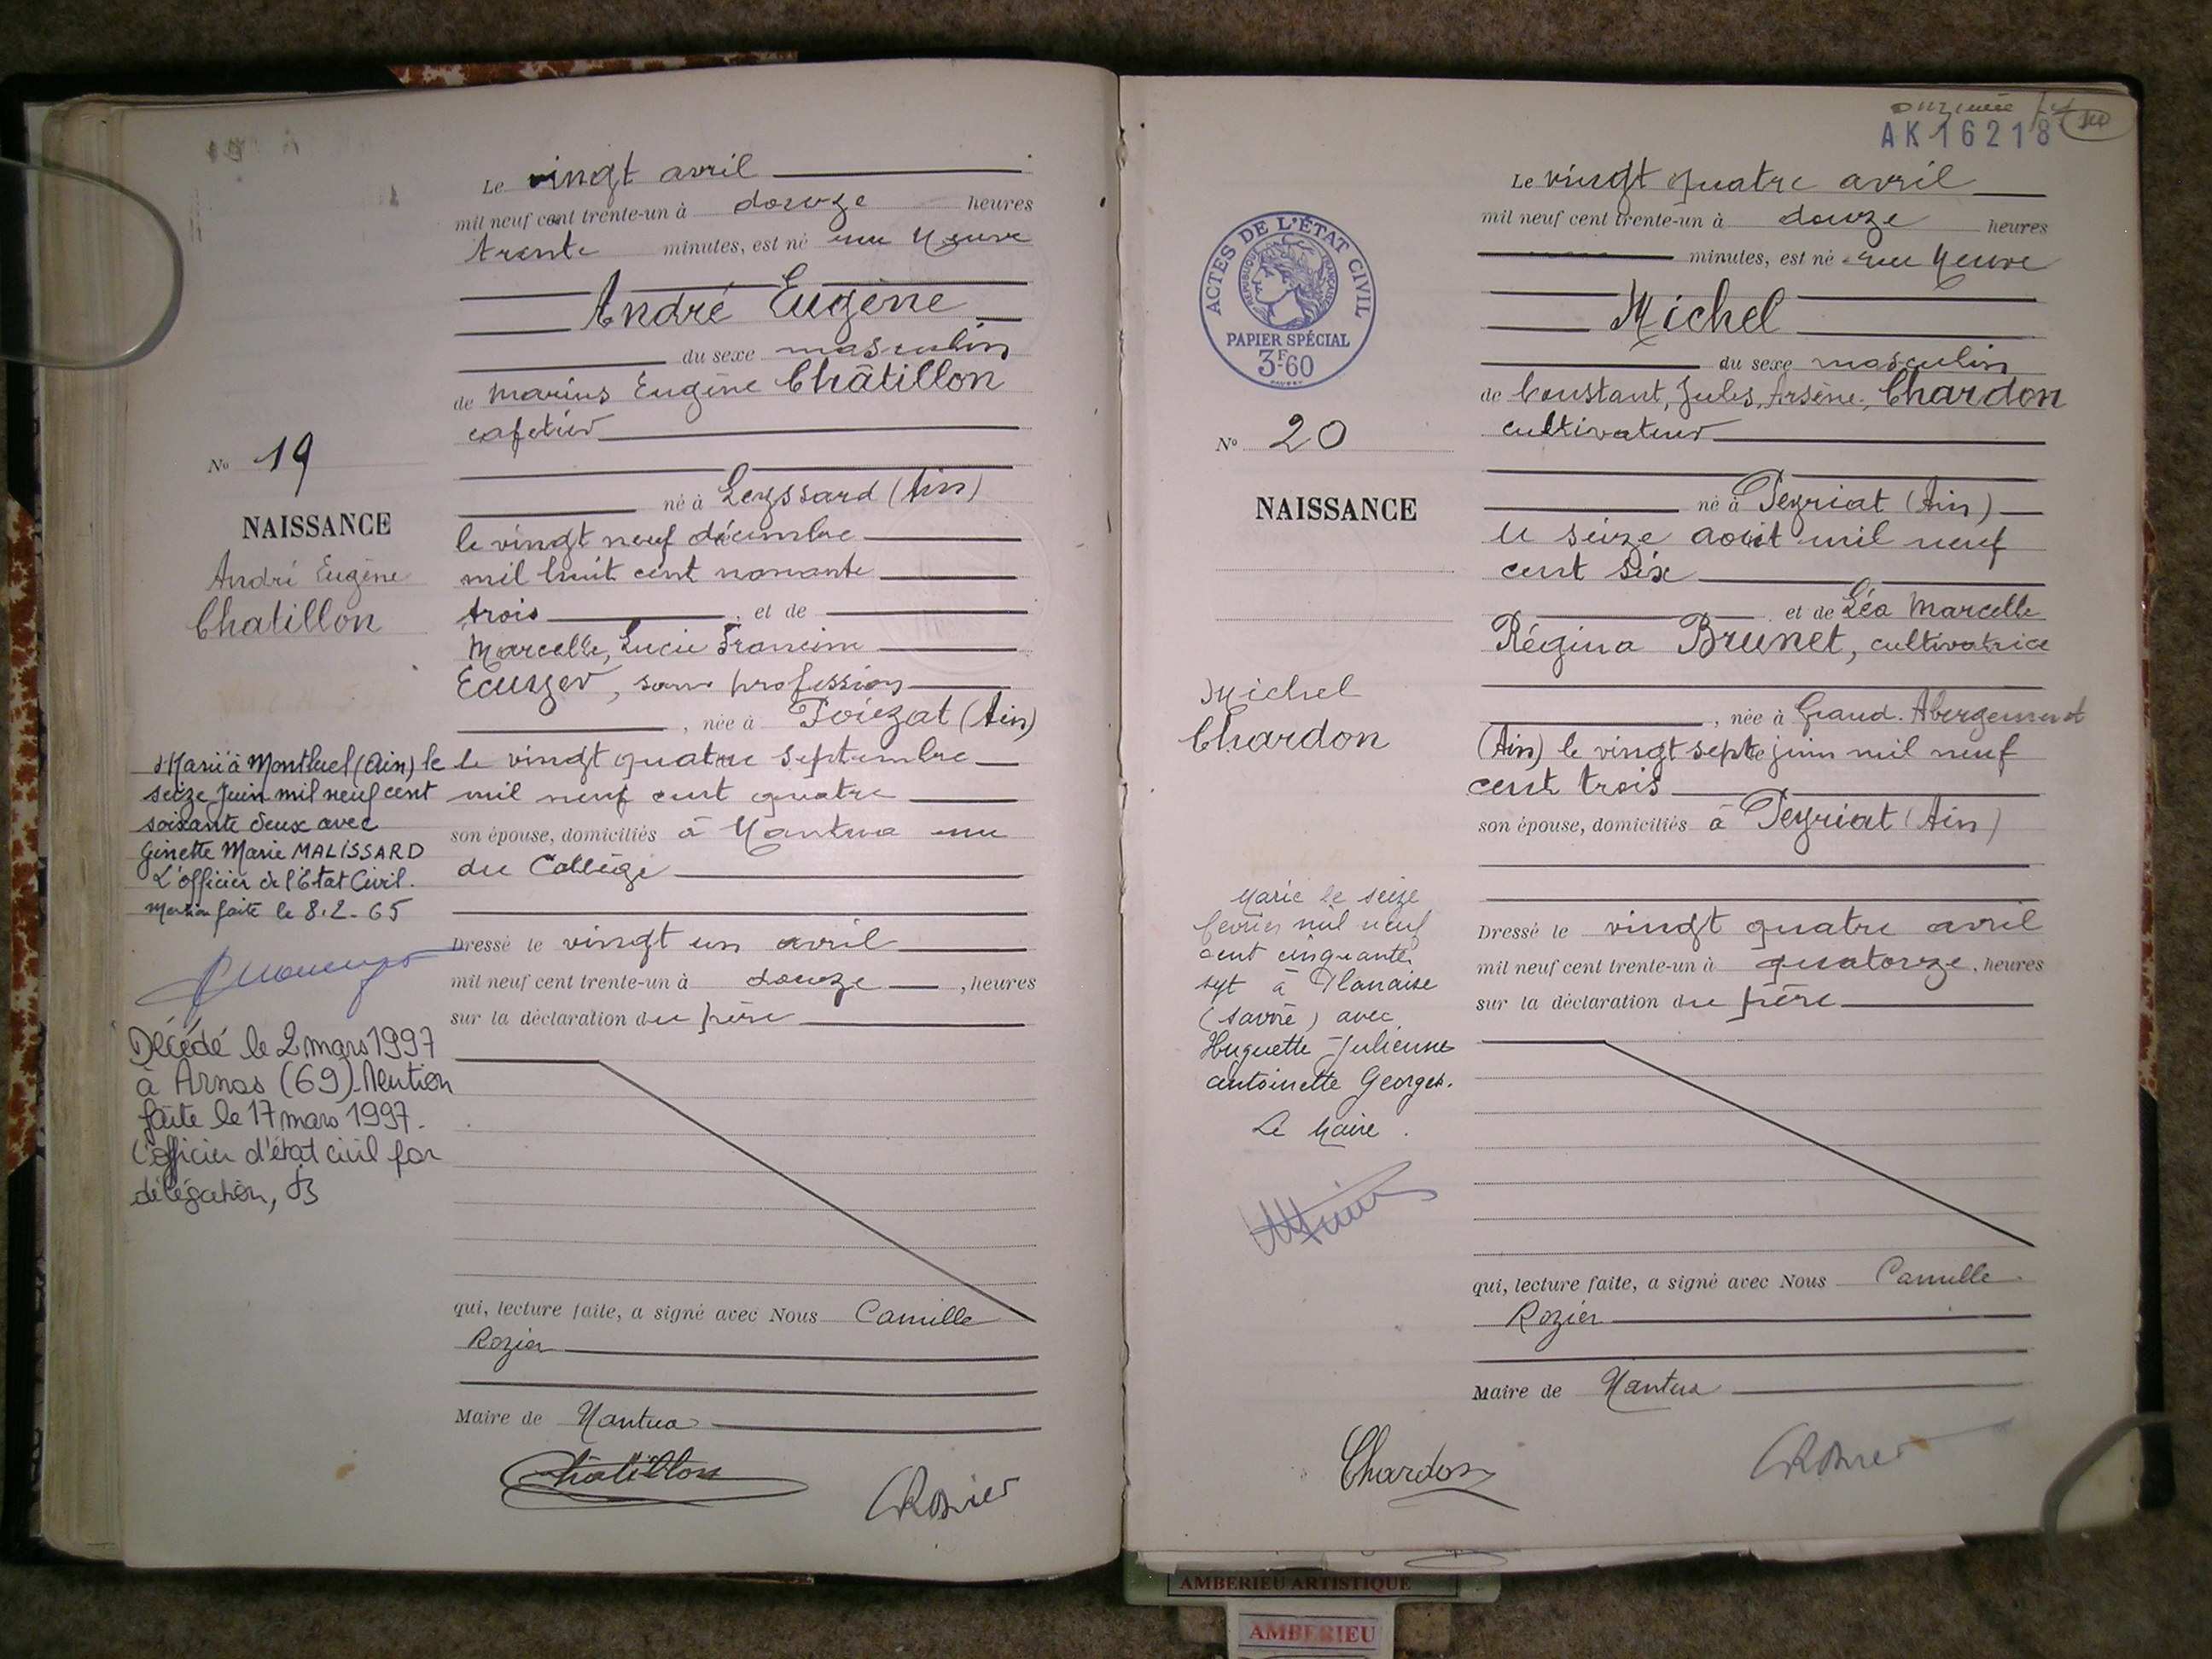 Le vingt avril
mil neuf cent trente-un à douze heures
trente minutes, est né rue Neuve
André Eugène
du sexe masculin
de Marius Eugène Châtillon
cafetier
né à Leyssard (Ain)
le vingt neuf décembre
mil huit cent nonante
trois et de
Marcelle, Lucie Francine
Ecuyer, sans profession
, née à Poizat (Ain)
le vingt quatre septembre
mil neuf cent quatre
son épouse, domiciliés à Nantua rue
du Collège
Dressé le vingt un avril
mil neuf cent trente-un à douze , heures
sur la déclaration du père
qui, lecture faite, a signé avec Nous Camille
Rozier
Maire de Nantua
Chatillon
CRozier
No 19
NAISSANCE
André Eugène
Chatillon
Marié à Montluel (Ain) le
seize Juin mil neuf cent
soixante deux avec
Ginette Marie MALISSARD
L'officier de l'Etat Civil.
Mention faite le 8.2-65
Décédé le 2 mars 1997
à Arnas (69). Mention
faite le 17 mars 1997.
L'officier d'état civil par
délégation,
AK16218
Le vingt quatre avril
mil neuf cent trente-un à douze heures
minutes, est né rue Neuve
Michel
du sexe masculin
de Constant, Jules, Arsène, Chardon
cultivateur
né à Peyriat (Ain)
le seize août mil neuf
cent six
et de Léa Marcelle
Régina Brunet, cultivatrice
, née à Grand-Abergement
(Ain) le vingt sept juin mil neuf
cent trois
son épouse, domiciliés à Peyriat (Ain)
Dressé le vingt quatre avril
mil neuf cent trente-un à quatorze, heures
sur la déclaration du père
qui, lecture faite, a signé avec Nous Camille
Rozier
Maire de Nantua
Chardon
CRozier
ACTES DE L'ÉTAT CIVIL
REPUBLIQUE FRANÇAISE
PAPIER SPÉCIAL
3F60
No 20
NAISSANCE
Michel
Chardon
Marié le seize
février mil neuf
cent cinquante
sept à Planaise
(Savoie) avec
Huguette Julienne
Antoinette Georges.
Le Maire.
AMBERIEU ARTISTIQUE
AMBERIEU